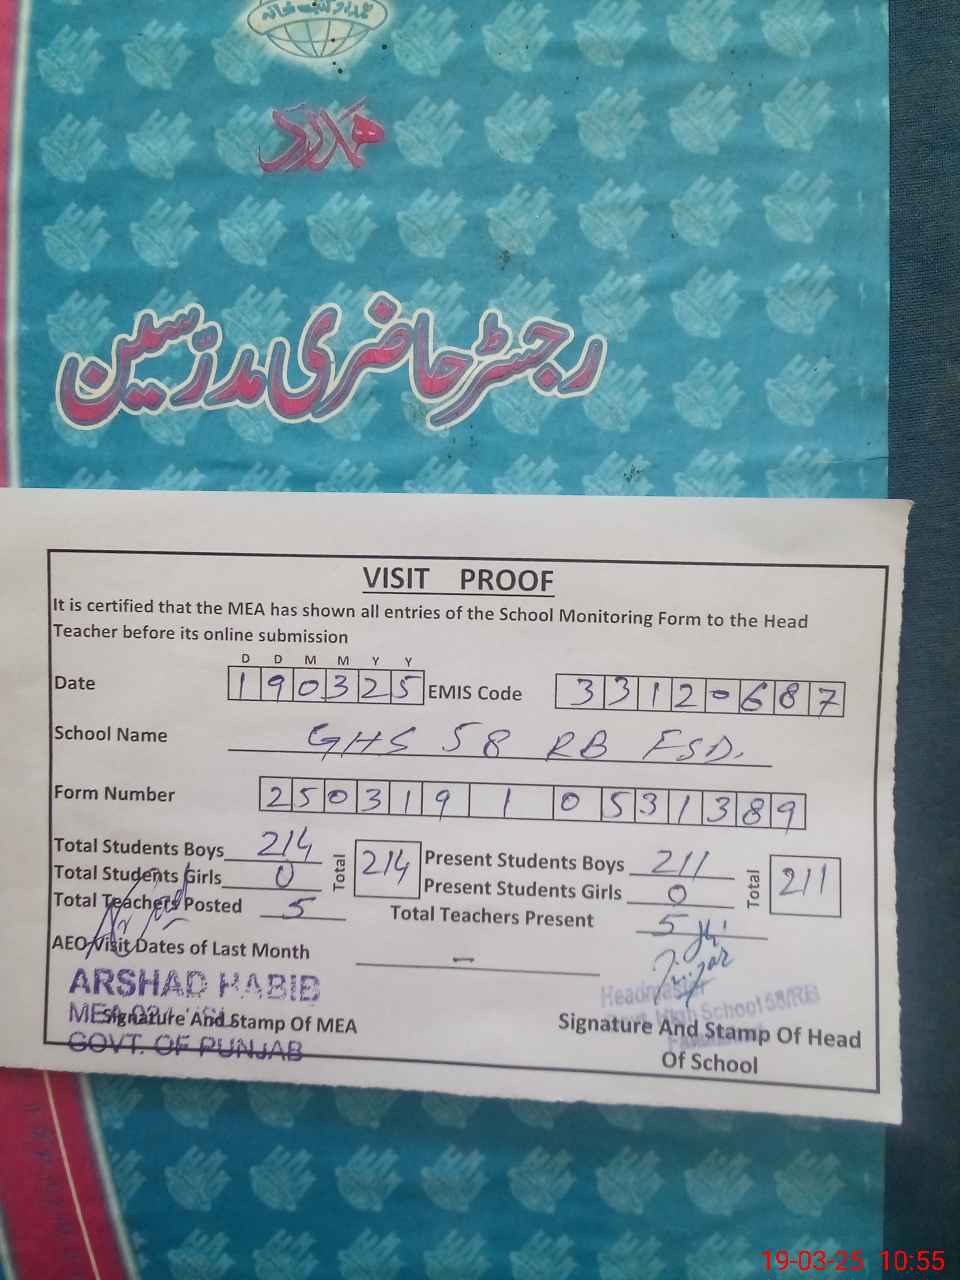 ہمدرد کتب خانہ
ہمدرد
رجسٹر حاضری مدرّسین
VISIT PROOF
It is certified that the MEA has shown all entries of the School Monitoring Form to the Head
Teacher before its online submission
D D M M Y Y
Date 190325 EMIS Code 3312-687
School Name GHS 58 RB FSD.
Form Number 250319 1 0531389
Total Students Boys 214 Total 214 Present Students Boys 211 Total 211
Total Students Girls 0 Present Students Girls 0
Total Teachers Posted 5 Total Teachers Present 5
AEO Visit Dates of Last Month -
ARSHAD HABIB
MEA
Signature And Stamp Of MEA
GOVT. OF PUNJAB
Headmaster
High School 58/RB
Signature And Stamp Of Head
Of School
19-03-25 10:55